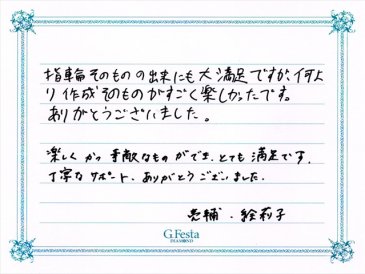 指輪そのものの出来にも大満足ですが、何よ
り作成そのものがすごく楽しかったです。
ありがとうございました。
楽しくかつ素敵なものができ、とても満足です。
丁寧なサポート、ありがとうございました。
亮輔・絵莉子
G.Festa
DIAMOND